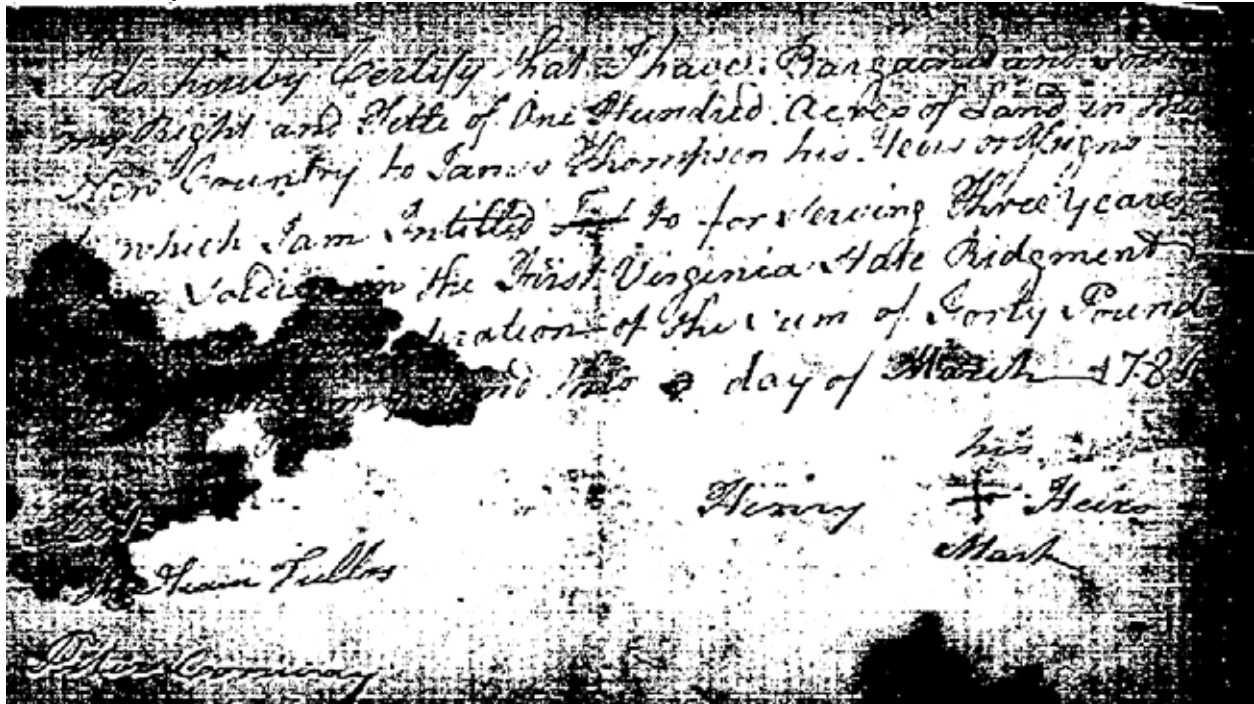 I do hereby Certify that I have Bargained and sold
my Right and Title of One Hundred Acres of Land in the
New Country to James Thompson his Heirs or Asigns
to which I am Intitled to for serving Three years
a Soldier in the First Virginia State Ridgment
of the sum of Forty Pounds
this day of March
his
Henry + Heirs
Mark
Test
Tullos
Peter Conway